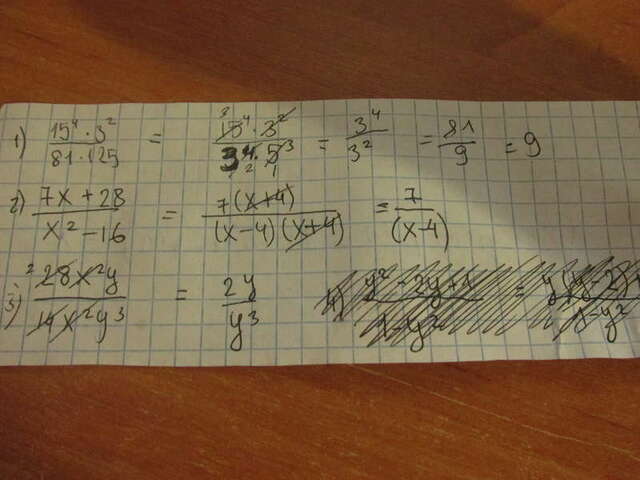 1) 15⁴ · 3² / 81 · 125 = 15⁴ · 3² / 3⁴ · 5³ = 3⁴ / 3² = 81 / 9 = 9
2) 7x + 28 / x² - 16 = 7(x+4) / (x-4)(x+4) = 7 / (x-4)
3) 28x²y / 14x²y³ = 2y / y³